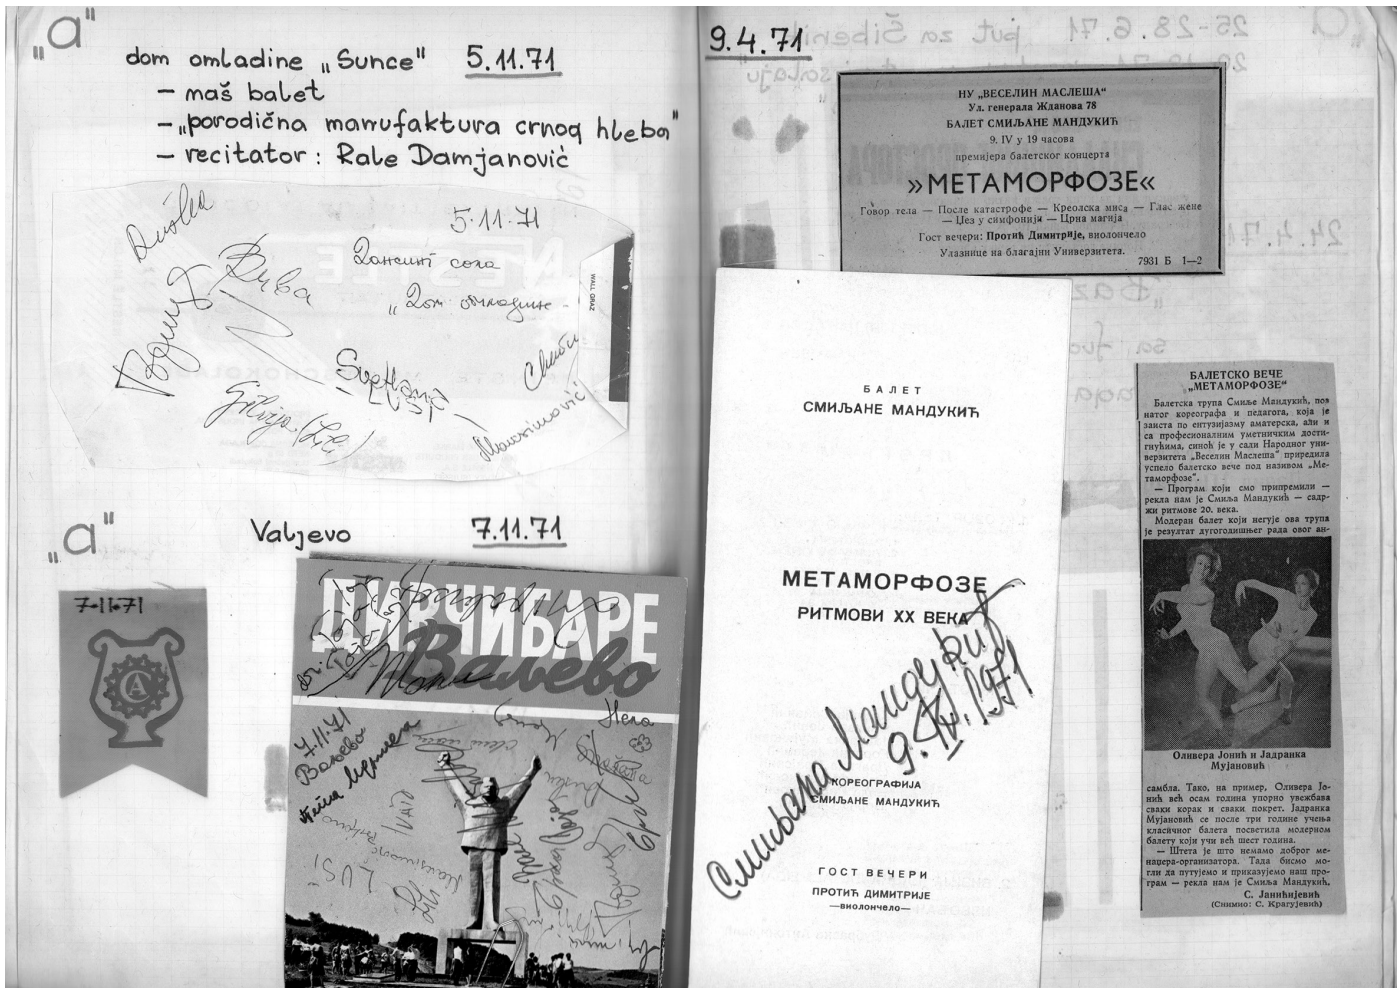 „a"
dom omladine „Sunce" 5.11.71
– maš balet
– „porodična manufaktura crnog hleba"
– recitator: Rale Damjanović
5.11.71
Дансинг сала
„Дом омладине
Duška
Бриба
Svetlana
Silvija (Lili)
Maksimović
WALL GRAZ
„a"
Valjevo 7.11.71
7.11.71
A
ДИВЧИБАРЕ
Ваљево
Мона
Нела
7.11.71
Ваљево
LUSI
9.4.71
НУ „ВЕСЕЛИН МАСЛЕША"
Ул. генерала Жданова 78
БАЛЕТ СМИЉАНЕ МАНДУКИЋ
9. IV у 19 часова
премијера балетског концерта
»МЕТАМОРФОЗЕ«
Говор тела — После катастрофе — Креолска миса — Глас жене
— Џез у симфонији — Црна магија
Гост вечери: Протић Димитрије, виолончело
Улазнице на благајни Универзитета.
7931 Б 1—2
БАЛЕТ
СМИЉАНЕ МАНДУКИЋ
МЕТАМОРФОЗЕ
РИТМОВИ XX ВЕКА
Смиљана Мандукић
9. IV. 1971
КОРЕОГРАФИЈА
СМИЉАНЕ МАНДУКИЋ
ГОСТ ВЕЧЕРИ
ПРОТИЋ ДИМИТРИЈЕ
—виолончело—
БАЛЕТСКО ВЕЧЕ
„МЕТАМОРФОЗЕ"
Балетска трупа Смиље Мандукић, поз
натог кореографа и педагога, која је
заиста по ентузијазму аматерска, али и
са професионалним уметничким дости-
гнућима, синоћ је у сали Народног уни-
верзитета „Веселин Маслеша" приредила
успело балетско вече под називом „Ме-
таморфозе".
— Програм који смо припремили —
рекла нам је Смиља Мандукић — садр-
жи ритмове 20. века.
Модеран балет који негује ова трупа
је резултат дугогодишњег рада овог ан-
Оливера Јонић и Јадранка
Мујановић
самбла. Тако, на пример, Оливера Јо-
нић већ осам година упорно увежбава
сваки корак и сваки покрет. Јадранка
Мујановић се после три године учења
класичног балета посветила модерном
балету који учи већ шест година.
— Штета је што немамо доброг ме-
наџера-организатора. Тада бисмо мо-
гли да путујемо и приказујемо наш про-
грам — рекла нам је Смиља Мандукић.
С. Јанићијевић
(Снимио: С. Крагујевић)